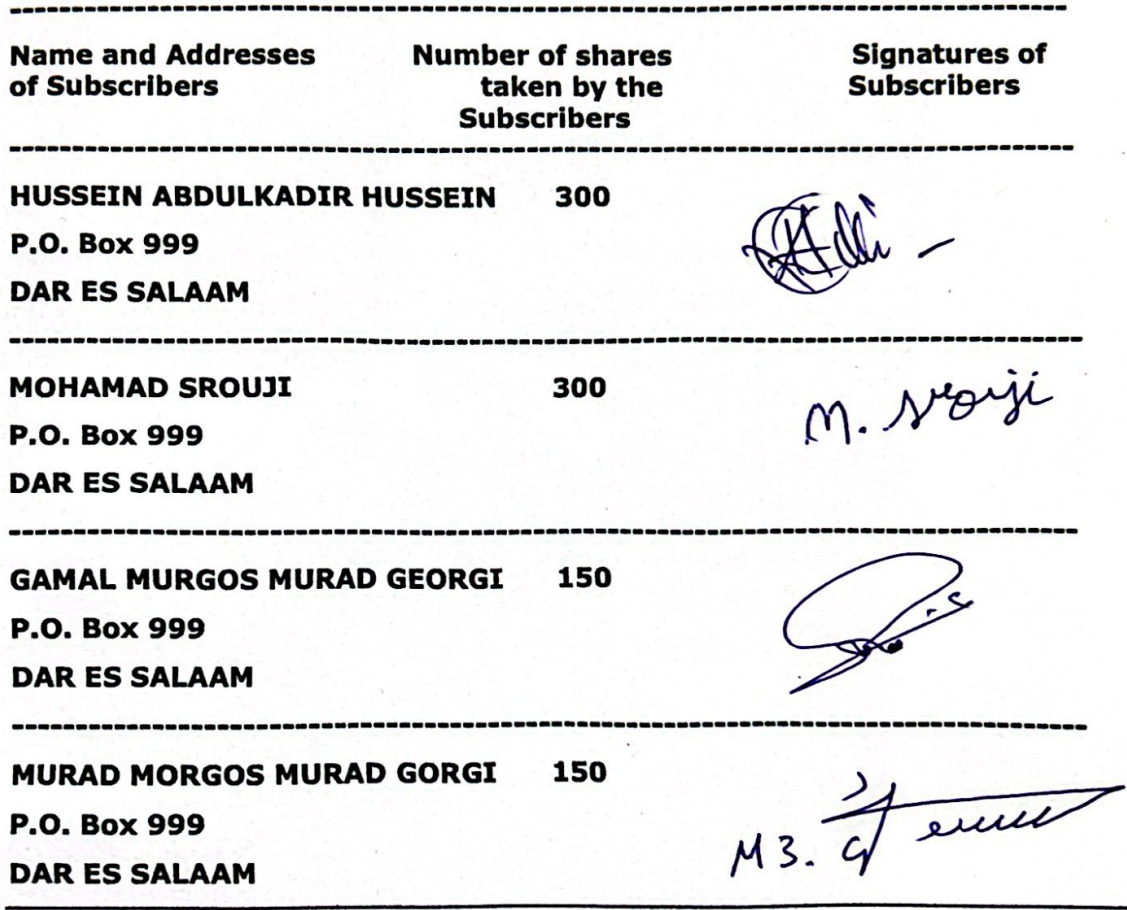 Name and Addresses of Subscribers
Number of shares taken by the Subscribers
Signatures of Subscribers
HUSSEIN ABDULKADIR HUSSEIN 300
P.O. Box 999
DAR ES SALAAM
MOHAMAD SROUJI 300 M. Srouji
P.O. Box 999
DAR ES SALAAM
GAMAL MURGOS MURAD GEORGI 150
P.O. Box 999
DAR ES SALAAM
MURAD MORGOS MURAD GORGI 150
P.O. Box 999
DAR ES SALAAM